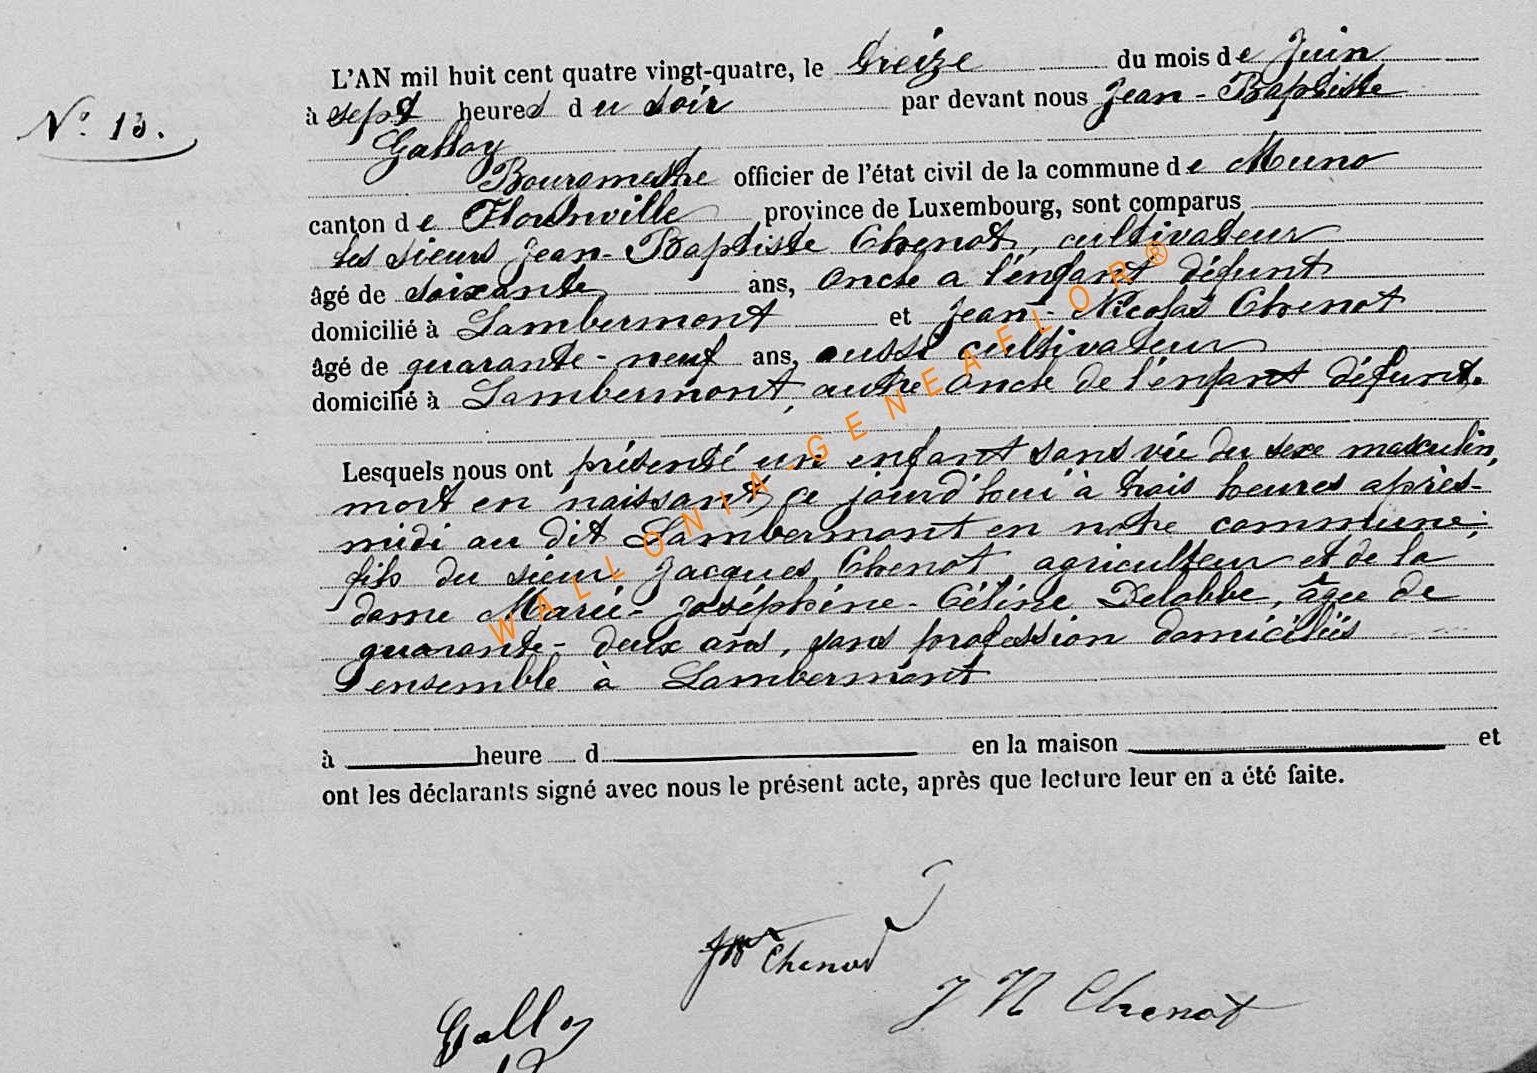 L'AN mil huit cent quatre vingt-quatre, le treize du mois de Juin
N° 13.
à sept heures du soir par devant nous Jean-Baptiste
Galloy
Bourgmestre officier de l'état civil de la commune de Muno
canton de Florenville province de Luxembourg, sont comparus
les sieurs Jean-Baptiste Chenot, cultivateur
âgé de soixante ans, oncle a l'enfant défunt
domicilié à Lambermont et Jean-Nicolas Chenot
âgé de quarante-neuf ans, aussi cultivateur
domicilié à Lambermont, autre oncle de l'enfant défunt.
Lesquels nous ont présenté un enfant sans vie du sexe masculin,
mort en naissant, ce jourd'hui à trois heures après-
midi au dit Lambermont en notre commune;
fils du sieur Jacques Chenot agriculteur et de la
dame Marie-Joséphine-Céline Delobbe, âgée de
quarante-deux ans, sans profession domiciliés
ensemble à Lambermont
à heure d en la maison et
ont les déclarants signé avec nous le présent acte, après que lecture leur en a été faite.
JB Chenot
J N Chenot
Galloy
WALLONIA-GENEAFLOR®